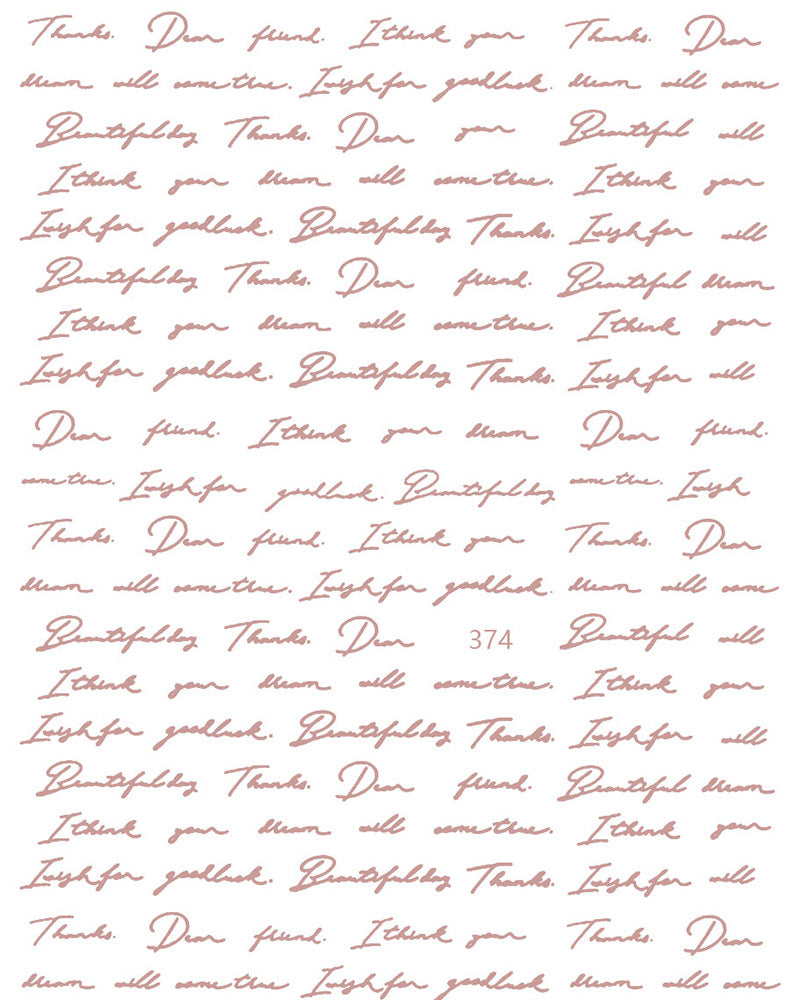 Thanks. Dear friend. I think your Thanks. Dear
dream will come true. I wish for goodluck. dream will come
Beautiful day Thanks. Dear your Beautiful will
I think your dream will come true. I think your
I wish for goodluck. Beautiful day Thanks. I wish for will
Beautiful day Thanks. Dear friend. Beautiful dream
I think your dream will come true. I think your
I wish for goodluck. Beautiful day Thanks. I wish for will
Dear friend. I think your dream Dear friend.
come true. I wish for goodluck. Beautiful day come true. I wish
Thanks. Dear friend. I think your Thanks. Dear
dream will come true. I wish for goodluck. dream will come
Beautiful day Thanks. Dear 374 Beautiful will
I think your dream will come true. I think your
I wish for goodluck. Beautiful day Thanks. I wish for will
Beautiful day Thanks. Dear friend. Beautiful dream
I think your dream will come true. I think your
I wish for goodluck. Beautiful day Thanks. I wish for will
Thanks. Dear friend. I think your Thanks. Dear
dream will come true I wish for goodluck dream will come